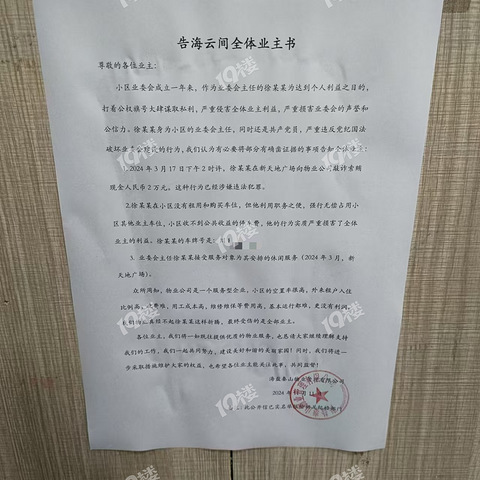 告海云间全体业主书
尊敬的各位业主:
小区业委会成立一年来,作为业委会主任的徐某某为达到个人利益之目的,
打着公权旗号大肆谋取私利,严重侵害全体业主利益,严重损害业委会的声誉和
公信力。徐某某身为小区的业委会主任,同时还是共产党员,严重违反党纪国法
破坏业委会建设的行为,我们认为有必要将部分有确凿证据的事项告知全体业主:
1.2024年3月17日下午2时许,徐某某在新天地广场向物业公司敲诈索贿
现金人民币2万元。这种行为已经涉嫌违法犯罪。
2.徐某某在小区没有租用和购买车位,但他利用职务之便,强行无偿占用小
区其他业主车位,小区收不到公共收益的停车费,他的行为实质严重损害了全体
业主的利益。徐某某的车牌号是:
3、业委会主任徐某某接受服务对象为其安排的休闲服务(2024年3月,新
天地广场)。
众所周知,物业公司是一个服务型企业,小区的空置率很高,外来租户入住
比例高,收费难,用工成本高,维修维保等费用高,基本运行都难,更没有利润,
我们物业真经不起徐某某这样折腾,最终受伤的是全部业主。
各位业主,我们将一如既往提供优质的物业服务,也恳请大家继续理解支持
我们的工作,我们一起共同努力,建设美好和谐的美丽家园!同时,我们将进一
步采取措施维护大家的权益,也希望各位业主能关注此事,共同监督!
海盐秦山物业管理有限公司
2024年 月11
此公开信已实名举报
19楼